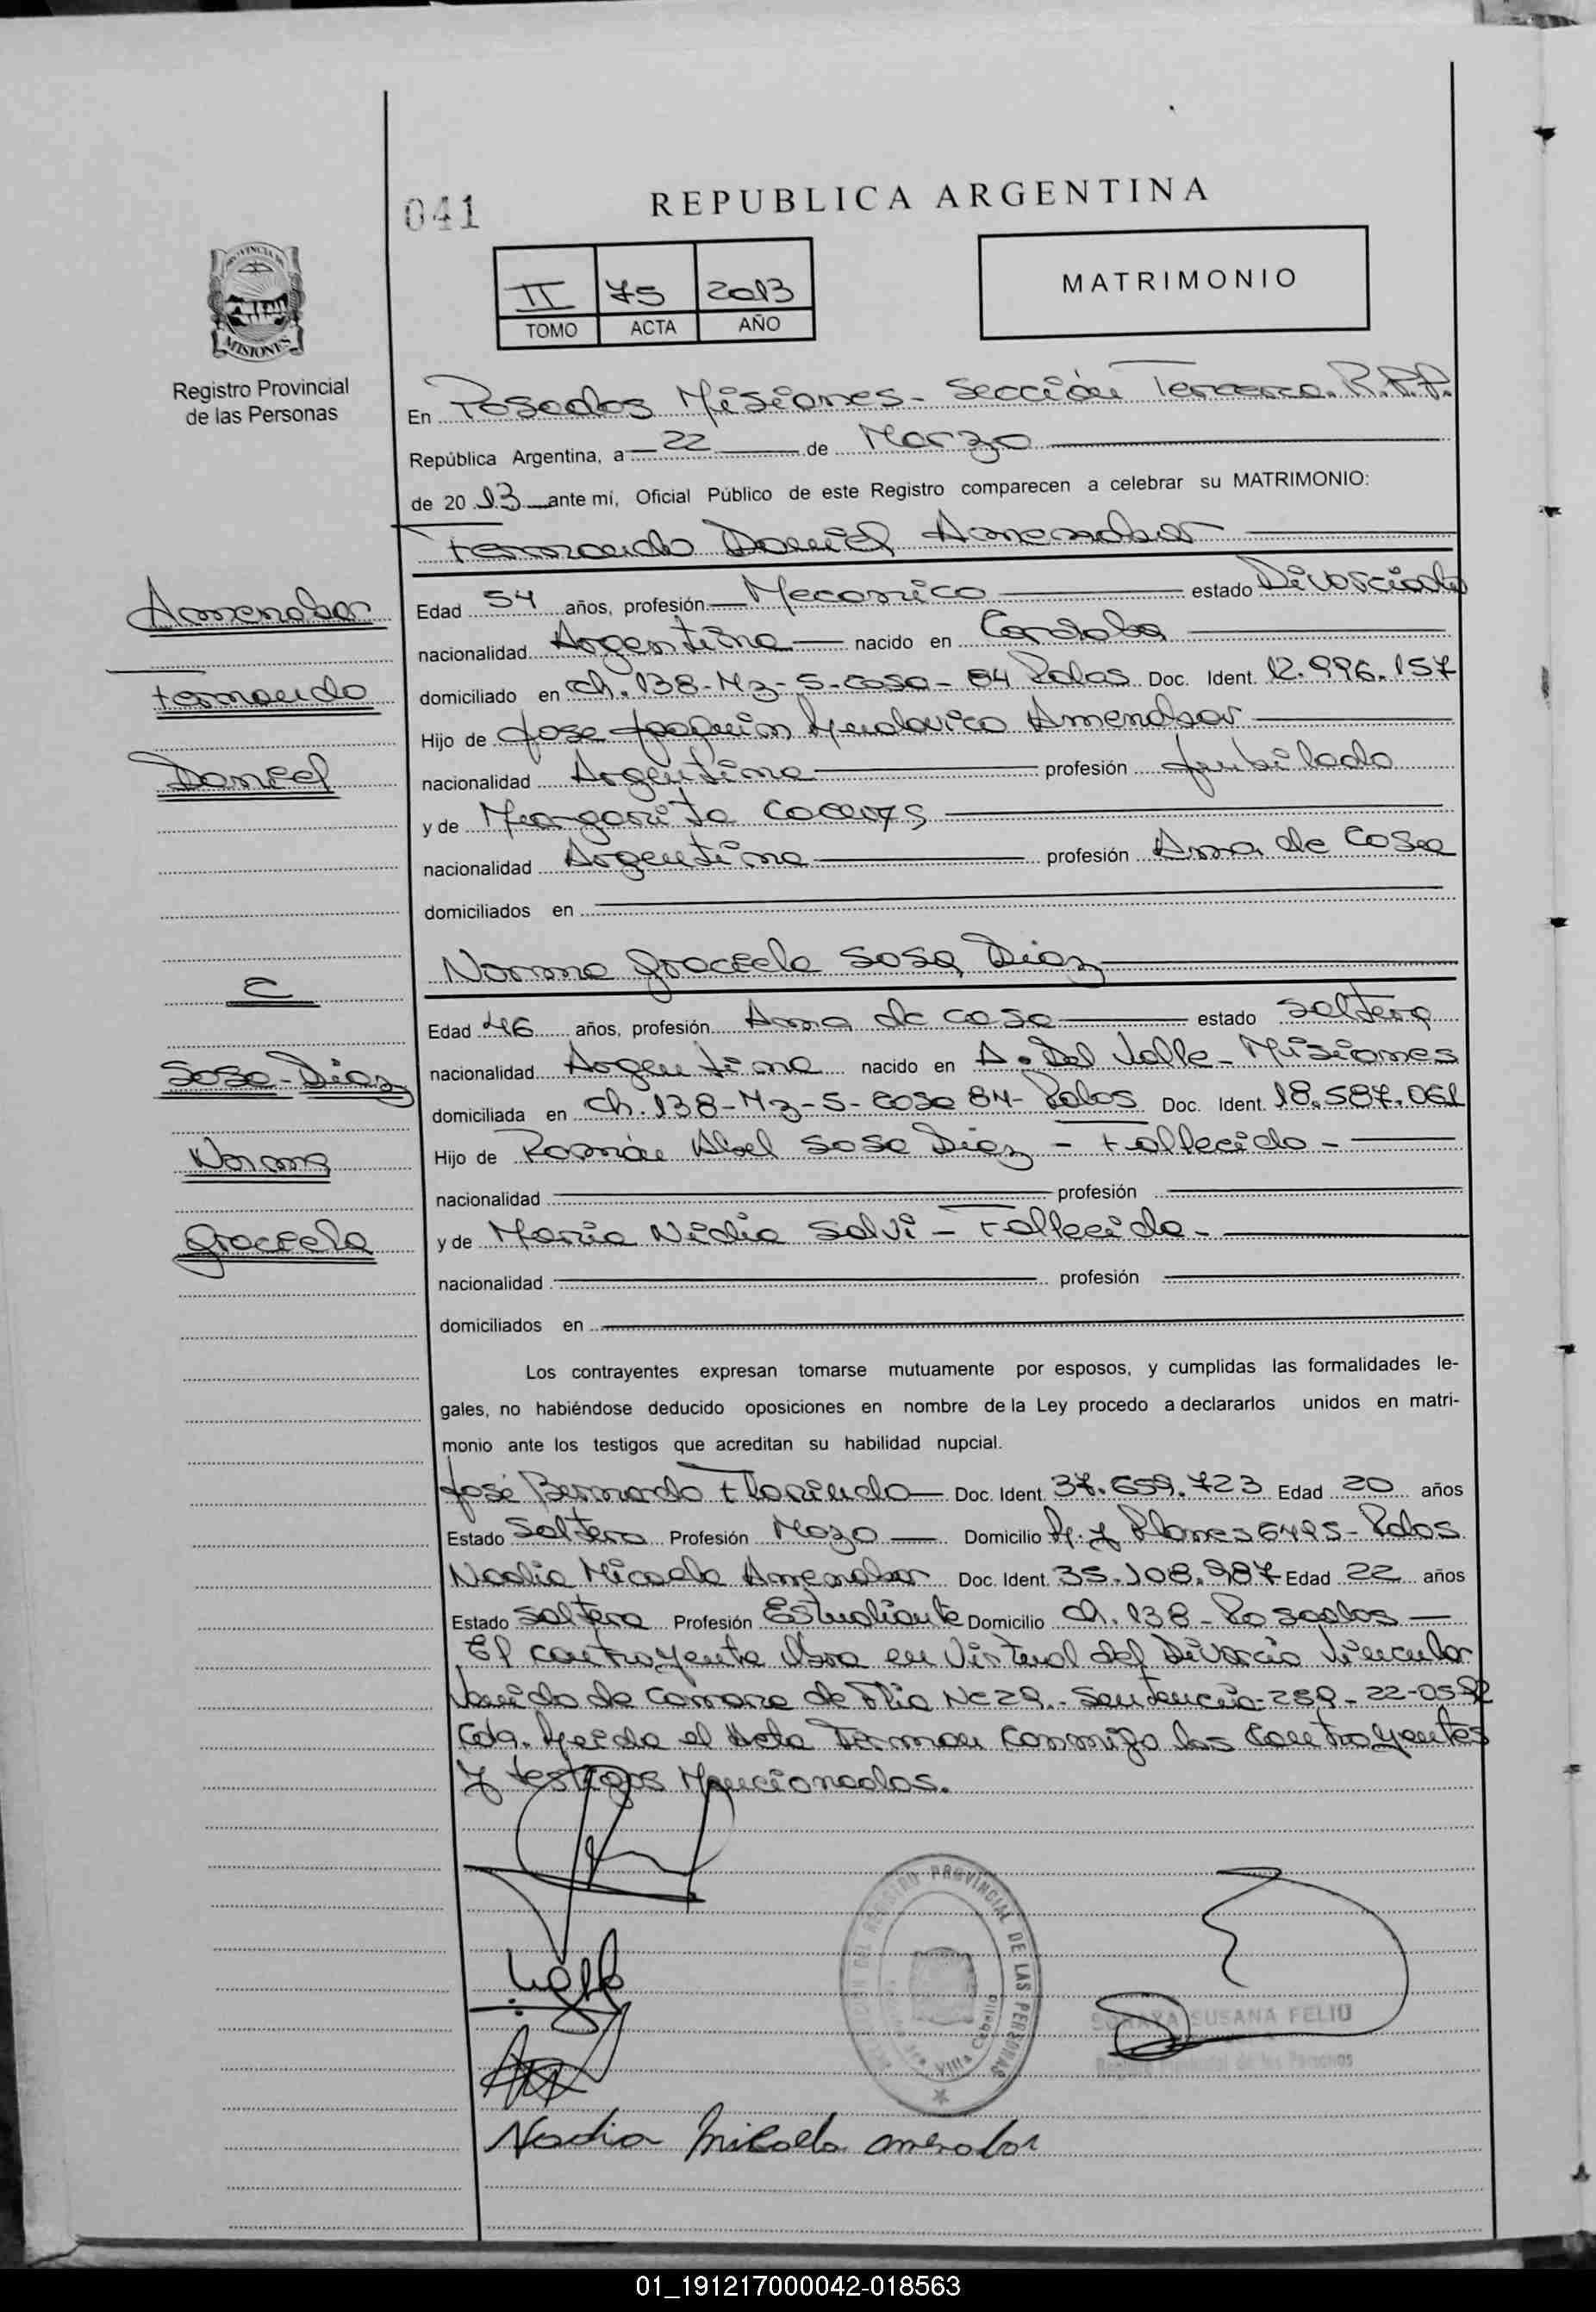 041
REPUBLICA ARGENTINA
PROVINCIA DE
MISIONES
Registro Provincial
de las Personas
II 75 2013
TOMO ACTA AÑO
MATRIMONIO
En Posadas Misiones - Sección Tercera. R.P.P.
República Argentina, a 22 de Marzo
de 2013 ante mí, Oficial Público de este Registro comparecen a celebrar su MATRIMONIO:
Fernando Daniel Amenabar
Amenabar
Edad 54 años, profesión Mecanico estado Divorciado
nacionalidad Argentina nacido en Cordoba
Fernando
domiciliado en Ch. 138-Mz-5-casa-84 Pdas Doc. Ident. 12.996.157
Hijo de Jose Joaquin Amenabar
Daniel
nacionalidad Argentina profesión Jubilado
y de Margarita
nacionalidad Argentina profesión Ama de Casa
domiciliados en
Norma Graciela Sosa Diaz
C
Edad 46 años, profesión Ama de casa estado Soltera
Sosa-Diaz
nacionalidad Argentina nacido en A. Del Valle - Misiones
domiciliada en Ch. 138-Mz-5-Casa 84- Pdas Doc. Ident. 18.587.061
Norma
Hijo de Román Abel Sosa Diaz - Fallecido -
nacionalidad profesión
Graciela
y de Maria Nidia Salvi - Fallecida -
nacionalidad profesión
domiciliados en
Los contrayentes expresan tomarse mutuamente por esposos, y cumplidas las formalidades le-
gales, no habiéndose deducido oposiciones en nombre de la Ley procedo a declararlos unidos en matri-
monio ante los testigos que acreditan su habilidad nupcial.
José Bernardo Florindo Doc. Ident. 37.659.723 Edad 20 años
Estado Soltero Profesión Mozo Domicilio Planes 6495 - Pdas
Nadia Micaela Amenabar Doc. Ident. 35.108.987 Edad 22 años
Estado Soltera Profesión Estudiante Domicilio Ch. 138 - Posadas
El contrayente Obra en Virtud del Divorcio Vincular
de Camara de Flia Nº 29 - Sentencia-259-22-05-92
Cda. Leida el Acta Firman Conmigo los Contrayentes
y testigos Mencionados.
REGISTRO PROVINCIAL DE LAS PERSONAS
Villa Cabello
SUSANA FELIU
de las Personas
Nadia Micaela amenabar
01_191217000042-018563